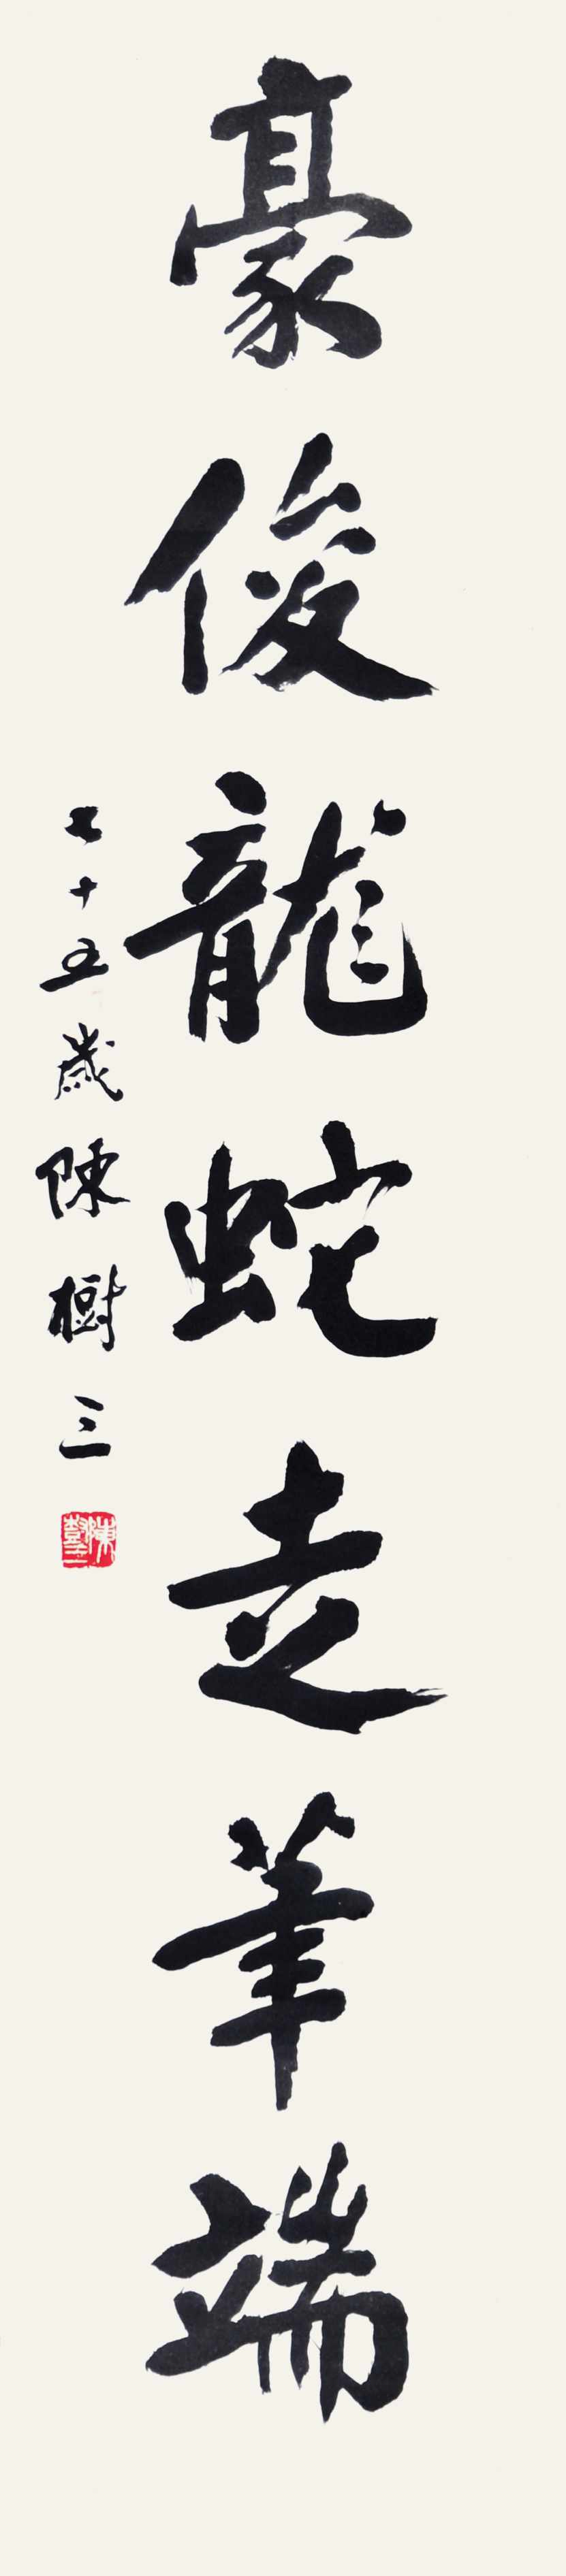 豪俊龍蛇走筆端
七十五歲陳樹三